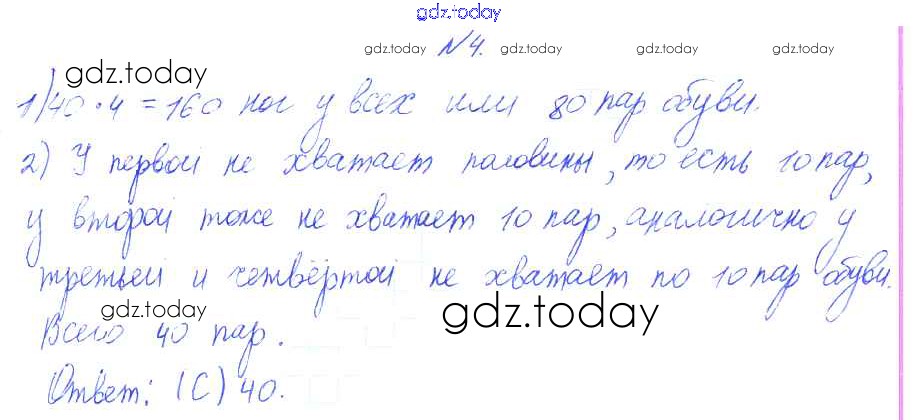 gdz.today
№4.
gdz.today gdz.today gdz.today gdz.today
gdz.today
1) 40 · 4 = 160 ног у всех или 80 пар обуви.
2) У первой не хватает половины, то есть 10 пар,
у второй тоже не хватает 10 пар, аналогично у
третьей и четвёртой не хватает по 10 пар обуви.
gdz.today gdz.today
Всего 40 пар.
Ответ: (C) 40.